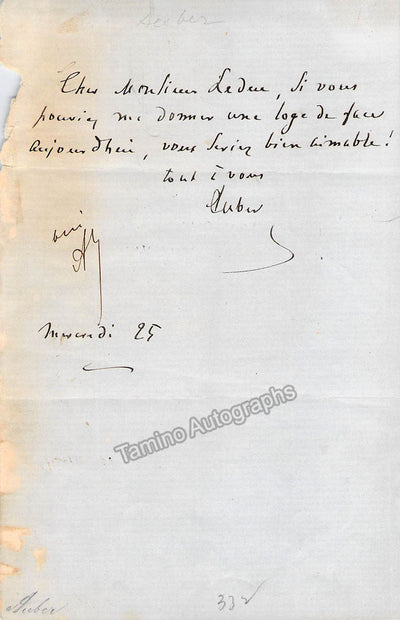 Auber
Cher Monsieur Leduc, si vous
pouviez me donner une loge de face
aujourdhui, vous seriez bien aimable!
tout à vous
Auber
oui
Mercredi 25
Tamino Autographs
Auber